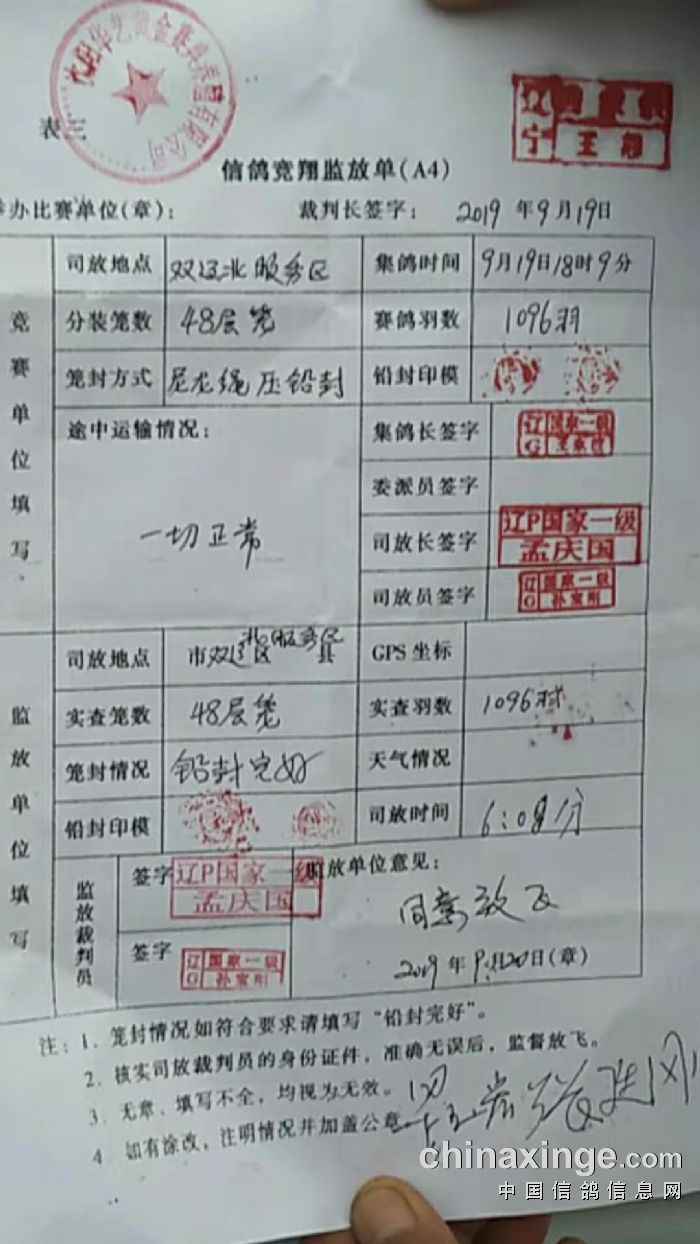 表
信鸽竞翔监放单(A4)
举办比赛单位(章): 裁判长签字: 2019年9月19日
竞赛单位填写
司放地点 双辽北服务区 集鸽时间 9月19日18时9分
分装笼数 48层笼 赛鸽羽数 1096羽
笼封方式 尼龙绳压铅封 铅封印模
途中运输情况: 一切正常
集鸽长签字 辽G 国家一级
委派员签字
司放长签字 辽P国家一级 孟庆国
司放员签字 辽G 国家一级
监放单位填写
司放地点 市双辽区北服务区县 GPS坐标
实查笼数 48层笼 实查羽数 1096羽
笼封情况 铅封完好 天气情况
铅封印模 司放时间 6:08分
监放裁判员
签字 辽P国家一级 孟庆国
签字 辽G 国家一级
监放单位意见:
同意放飞
2019年9月20日(章)
注: 1、笼封情况如符合要求请填写“铅封完好”。
2、核实司放裁判员的身份证件,准确无误后,监督放飞。
3、无章、填写不全,均视为无效。
4、如有涂改,注明情况并加盖公章
辽宁 王
chinaxinge.com
中国信鸽信息网